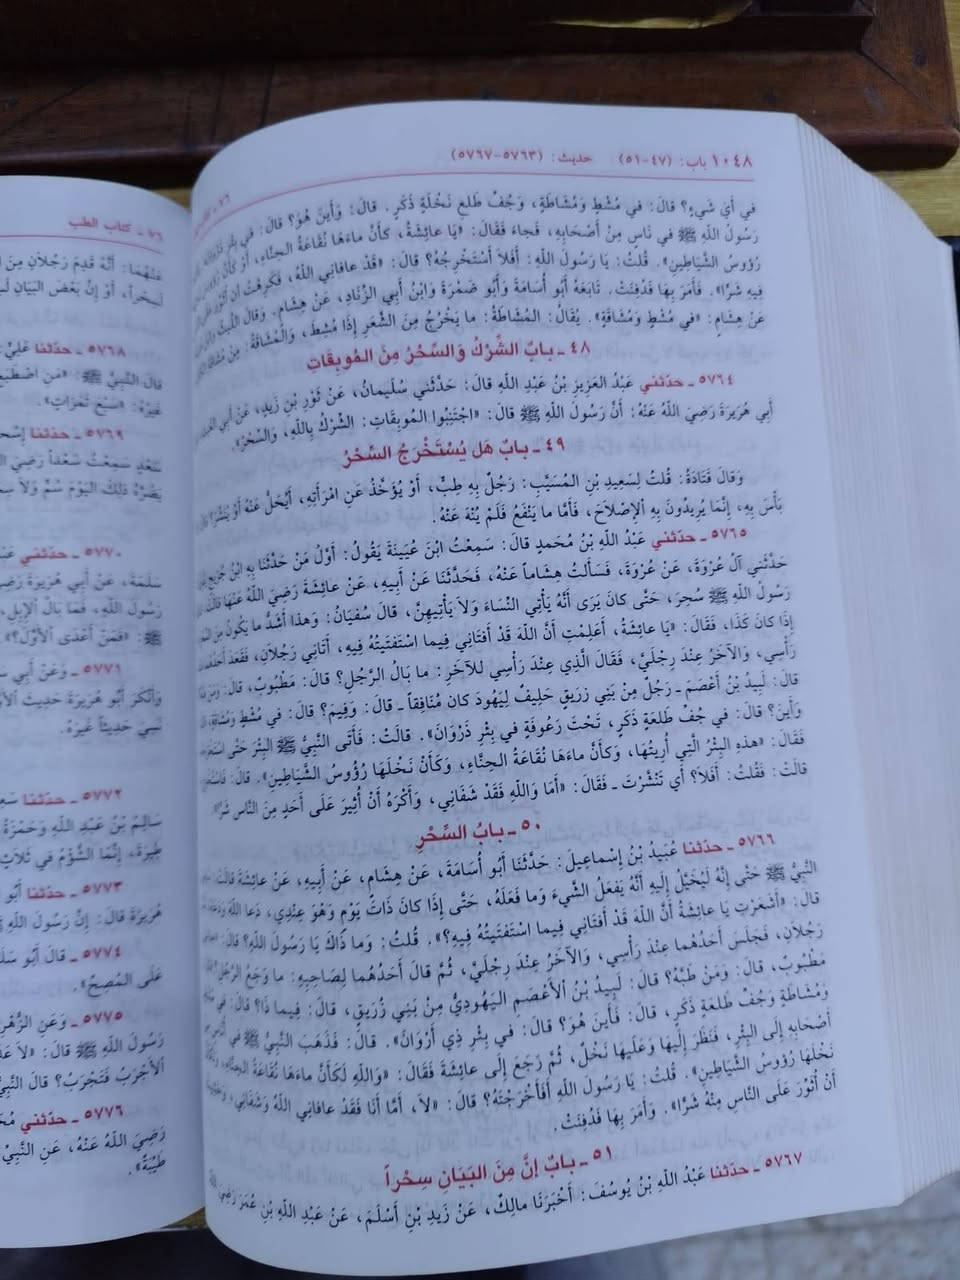 ١٠٤٨ باب: (٤٧-٥١) حديث: (٥٧٦٣-٥٧٦٧)
في أيِّ شَيءٍ؟ قالَ: في مُشْطٍ وَمُشَاطَةٍ، وَجُفِّ طَلعِ نَخْلَةٍ ذَكَرٍ. قالَ: وَأَينَ هُوَ؟ قالَ: في بِئرِ
رَسُولُ اللَّهِ ﷺ في نَاسٍ مِنْ أَصْحَابِهِ، فَجاءَ فَقَالَ: «يَا عائِشَةُ، كأَنَّ ماءَهَا نُقَاعَةُ الحِنَّاءِ، أَوْ كأَنَّ
رُؤُوسُ الشَّيَاطِينِ». قُلتُ: يَا رَسُولَ اللَّهِ: أَفَلاَ أَسْتَخْرِجُهُ؟ قالَ: «قَدْ عافَانِي اللَّهُ، فَكَرِهْتُ أَنْ أُثَوِّرَ عَلَى
فِيهِ شَرًّا». فَأَمَرَ بِهَا فَدُفِنَتْ. تَابَعَهُ أَبُو أُسَامَةَ وَأَبُو ضَمْرَةَ وَابْنُ أَبِي الزِّنَادِ، عَنْ هِشَامٍ. وَقالَ اللَّيثُ
عَنْ هِشَامٍ: «في مُشْطٍ وَمُشَاقَةٍ». يُقَالُ: المُشَاطَةُ: ما يَخْرُجُ مِنَ الشَّعَرِ إِذَا مُشِطَ، وَالمُشَاقَةُ: مِنْ مُشَاقَةِ
٤٨ ـ بابٌ الشِّرْكُ وَالسِّحْرُ مِنَ المُوبِقَاتِ
٥٧٦٤ ـ حدّثني عَبْدُ العَزِيزِ بْنُ عَبْدِ اللَّهِ قالَ: حَدَّثَنِي سُلَيمانُ، عَنْ ثَوْرِ بْنِ زَيدٍ، عَنْ أَبِي
أَبِي هُرَيرَةَ رَضِيَ اللَّهُ عَنْهُ: أَنَّ رَسُولَ اللَّهِ ﷺ قالَ: «اجْتَنِبُوا المُوبِقَاتِ: الشِّرْكُ بِاللَّهِ، وَالسِّحْرُ».
٤٩ ـ بابٌ هَل يُسْتَخْرَجُ السِّحْرُ
وَقالَ قَتَادَةُ: قُلتُ لِسَعِيدِ بْنِ المُسَيَّبِ: رَجُلٌ بِهِ طِبٌّ، أَوْ يُؤَخَّذُ عَنِ امْرَأَتِهِ، أَيُحَلُّ عَنْهُ أَوْ يُنَشَّرُ؟ قالَ:
بَأْسَ بِهِ، إِنَّمَا يُرِيدُونَ بِهِ الإِصْلاَحَ، فَأَمَّا ما يَنْفَعُ فَلَمْ يُنْهَ عَنْهُ.
٥٧٦٥ ـ حدّثني عَبْدُ اللَّهِ بْنُ مُحَمدٍ قالَ: سَمِعْتُ ابْنَ عُيَينَةَ يَقُولُ: أَوَّلُ مَنْ حَدَّثَنَا بِهِ ابْنُ جُرَيجٍ
حَدَّثَنِي آلُ عُرْوَةَ، عَنْ عُرْوَةَ، فَسَأَلتُ هِشَاماً عَنْهُ، فَحَدَّثَنَا عَنْ أَبِيهِ، عَنْ عائِشَةَ رَضِيَ اللَّهُ عَنْهَا قالَتْ
رَسُولُ اللَّهِ ﷺ سُحِرَ، حَتَّى كانَ يَرَى أَنَّهُ يَأْتِي النِّسَاءَ وَلاَ يَأْتِيهِنَّ، قالَ سُفيَانُ: وَهذا أَشَدُّ ما يَكُونُ مِنَ
إِذَا كانَ كَذَا، فَقَالَ: «يَا عائِشَةُ، أَعَلِمْتِ أَنَّ اللَّهَ قَدْ أَفتَانِي فِيما اسْتَفتَيتُهُ فِيهِ، أَتَانِي رَجُلاَنِ، فَقَعَدَ أَحَدُهُمَا
رَأْسِي، وَالآخَرُ عِنْدَ رِجْلَيَّ، فَقَالَ الَّذِي عِنْدَ رَأْسِي لِلآخَرِ: ما بَالُ الرَّجُلِ؟ قالَ: مَطْبُوبٌ، قالَ: وَمَنْ
قالَ: لَبِيدُ بْنُ أَعْصَمَ ـ رَجُلٌ مِنْ بَنِي زُرَيقٍ حَلِيفٌ لِيَهُودَ كانَ مُنَافِقاً ـ قالَ: وَفِيمَ؟ قالَ: في مُشْطٍ وَمُشَاقَةٍ،
وَأَينَ؟ قالَ: في جُفِّ طَلعَةٍ ذَكَرٍ، تَحْتَ رَعُوفَةٍ في بِئْرِ ذَرْوَانَ». قالَتْ: فَأَتَى النَّبِيُّ ﷺ البِئْرَ حَتَّى
فَقَالَ: «هذهِ البِئْرُ الَّتِي أُرِيتُهَا، وَكأَنَّ ماءَهَا نُقَاعَةُ الحِنَّاءِ، وَكَأَنَّ نَخْلَهَا رُؤُوسُ الشَّيَاطِينِ». قالَ:
قالَتْ: فَقُلتُ: أَفَلاَ؟ أَي تَنَشَّرْتَ ـ فَقَالَ: «أَمَا وَاللَّهِ فَقَدْ شَفَانِي، وَأَكْرَهُ أَنْ أُثِيرَ عَلَى أَحَدٍ مِنَ النَّاسِ شَرًّا».
٥٠ ـ بابُ السِّحْرِ
٥٧٦٦ ـ حدّثنا عُبَيدُ بْنُ إِسْماعِيلَ: حَدَّثَنَا أَبُو أُسَامَةَ، عَنْ هِشَامٍ، عَنْ أَبِيهِ، عَنْ عائِشَةَ قالَتْ:
النَّبِيُّ ﷺ حَتَّى إِنَّهُ لَيُخَيَّلُ إِلَيهِ أَنَّهُ يَفعَلُ الشَّيءَ وَما فَعَلَهُ، حَتَّى إِذَا كانَ ذَاتَ يَوْمٍ وَهُوَ عِنْدِي، دَعا اللَّهَ وَدَعاهُ،
قالَ: «أَشَعَرْتِ يَا عائِشَةُ أَنَّ اللَّهَ قَدْ أَفتَانِي فِيما اسْتَفتَيتُهُ فِيهِ؟». قُلتُ: وَما ذَاكَ يَا رَسُولَ اللَّهِ؟ قالَ:
رَجُلاَنِ، فَجَلَسَ أَحَدُهُما عِنْدَ رَأْسِي، وَالآخَرُ عِنْدَ رِجْلَيَّ، ثُمَّ قالَ أَحَدُهُمَا لِصَاحِبِهِ: ما وَجَعُ الرَّجُلِ؟
مَطْبُوبٌ، قالَ: وَمَنْ طَبَّهُ؟ قالَ: لَبِيدُ بْنُ الأَعْصَمِ اليَهُودِيُّ مِنْ بَنِي زُرَيقٍ، قالَ: فِيما ذَا؟ قالَ: في
وَمُشَاطَةٍ وَجُفِّ طَلعَةِ ذَكَرٍ، قالَ: فَأَينَ هُوَ؟ قالَ: في بِئْرِ ذِي أَرْوَانَ». قالَ: فَذَهَبَ النَّبِيُّ ﷺ في
أَصْحَابِهِ إِلَى البِئْرِ، فَنَظَرَ إِلَيهَا وَعَلَيهَا نَخْلٌ، ثُمَّ رَجَعَ إِلَى عائِشَةَ فَقَالَ: «وَاللَّهِ لَكَأَنَّ ماءَهَا نُقَاعَةُ الحِنَّاءِ،
نَخْلَهَا رُؤُوسُ الشَّيَاطِينِ». قُلتُ: يَا رَسُولَ اللَّهِ أَفَأَخْرَجْتَهُ؟ قالَ: «لاَ، أَمَّا أَنَا فَقَدْ عافَانِيَ اللَّهُ وَشَفَانِي،
أَنْ أُثَوِّرَ عَلَى النَّاسِ مِنْهُ شَرًّا». وَأَمَرَ بِهَا فَدُفِنَتْ.
٥١ ـ بابٌ إِنَّ مِنَ البَيَانِ سِحْراً
٥٧٦٧ ـ حدّثنا عَبْدُ اللَّهِ بْنُ يُوسُفَ: أَخْبَرَنَا مالِكٌ، عَنْ زَيدِ بْنِ أَسْلَمَ، عَنْ عَبْدِ اللَّهِ بْنِ عُمَرَ رَضِيَ اللَّهُ
٧٦ ـ كتاب الطب
عَنْهُمَا: أَنَّهُ قَدِمَ رَجُلاَنِ مِنَ
لَسِحْراً، أَوْ إِنَّ بَعْضَ البَيَانِ
٥٧٦٨ ـ حدّثنا عَلِيٌّ
قالَ النَّبِيُّ ﷺ: «مَنِ اصْطَبَحَ
غَيرُهُ: «سَبْعَ تَمَرَاتٍ».
٥٧٦٩ ـ حدّثنا
سَعْدٍ سَمِعْتُ سَعْداً رَضِيَ
يَضُرَّهُ ذلِكَ اليَوْمَ سُمٌّ وَلاَ
٥٧٧٠ ـ حدّثني
سَلَمَةَ، عَنْ أَبِي هُرَيرَةَ
رَسُولَ اللَّهِ، فَمَا بَالُ الإِبِلِ
ﷺ: «فَمَنْ أَعْدَى الأَوَّلَ؟».
٥٧٧١ ـ وَعَنْ أَبِي
وَأَنْكَرَ أَبُو هُرَيرَةَ حَدِيثَ
نَسِيَ حَدِيثاً غَيرَهُ.
٥٧٧٢ ـ حدّثنا
سَالِمُ بْنُ عَبْدِ اللَّهِ وَحَمْزَةُ
طِيَرَةَ، إِنَّمَا الشُّؤْمُ في ثَلاَثٍ
٥٧٧٣ ـ حدّثنا أَبُو
هُرَيرَةَ قالَ: إِنَّ رَسُولَ اللَّهِ
٥٧٧٤ ـ قالَ أَبُو
عَلَى المُصِحِّ».
٥٧٧٥ ـ وَعَنِ
رَسُولَ اللَّهِ ﷺ قالَ: «لاَ
الأَجْرَبُ فَتَجْرَبُ؟ قالَ
٥٧٧٦ ـ حدّثني
رَضِيَ اللَّهُ عَنْهُ، عَنِ النَّبِيِّ
طَيِّبَةٌ».